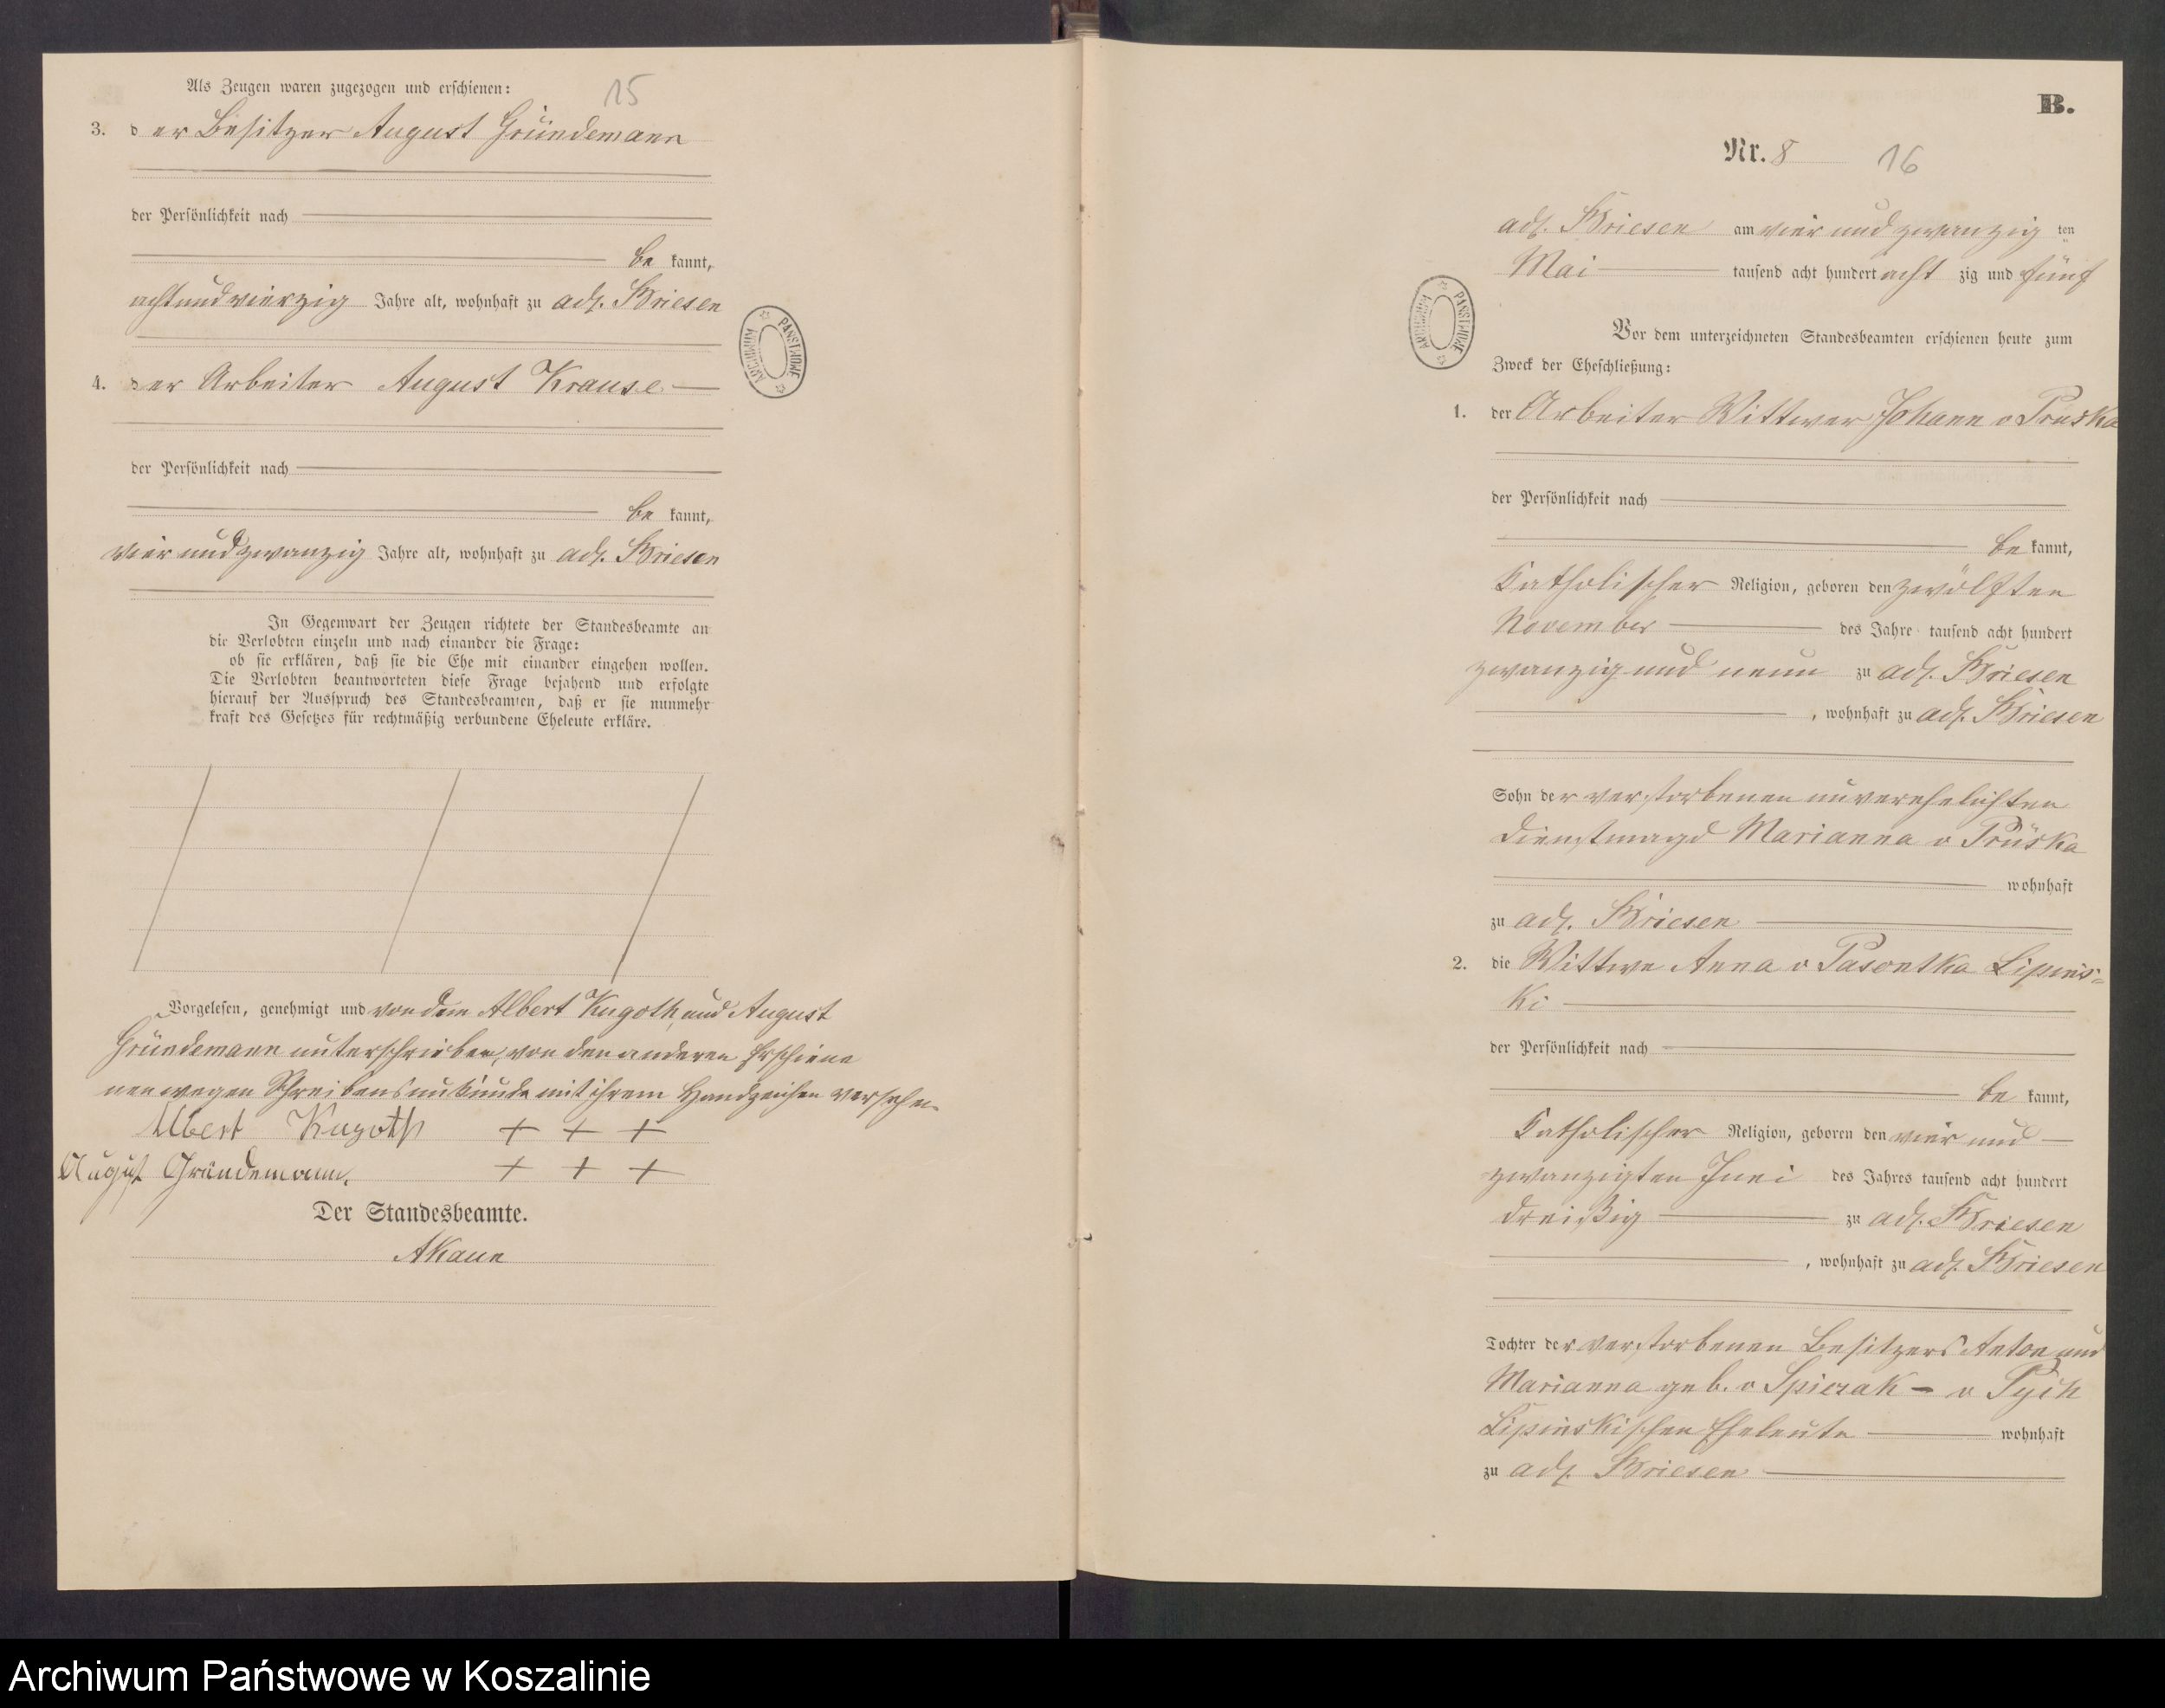 Als Zeugen waren zugezogen und erschienen:
15
3. der Besitzer August Gründemann
der Persönlichkeit nach
be kannt,
achtundvierzig Jahre alt, wohnhaft zu adl. Briesen
4. der Arbeiter August Krause
der Persönlichkeit nach
be kannt,
vier und zwanzig Jahre alt, wohnhaft zu adl. Briesen
In Gegenwart der Zeugen richtete der Standesbeamte an
die Verlobten einzeln und nach einander die Frage:
ob sie erklären, daß sie die Ehe mit einander eingehen wollen.
Die Verlobten beantworteten diese Frage bejahend und erfolgte
hierauf der Ausspruch des Standesbeamten, daß er sie nunmehr
kraft des Gesetzes für rechtmäßig verbundene Eheleute erkläre.
Vorgelesen, genehmigt und von dem Albert Kugoth und August
Gründemann unterschrieben, von den anderen Erschiene
nen wegen Schreibensunkunde mit ihrem Handzeichen versehen
Albert Kugoth + + +
August Gründemann. + + +
Der Standesbeamte.
AKaun
B.
Nr. 8 16
adl. Briesen am vier und zwanzig ten
Mai tausend acht hundert acht zig und fünf
Vor dem unterzeichneten Standesbeamten erschienen heute zum
Zweck der Eheschließung:
1. der Arbeiter Wittwer Johann v Pruska
der Persönlichkeit nach
be kannt,
Katholischer Religion, geboren den zwölften
November des Jahre tausend acht hundert
zwanzig und neun zu adl. Briesen
, wohnhaft zu adl. Briesen
Sohn der verstorbenen unverehelichten
Dienstmagd Marianna v Pruska
wohnhaft
zu adl. Briesen
2. die Wittwe Anna v Lipins-
ki
der Persönlichkeit nach
be kannt,
Katholischer Religion, geboren den vier und
zwanzigsten Juni des Jahres tausend acht hundert
dreißig zu adl. Briesen
, wohnhaft zu adl. Briesen
Tochter der verstorbenen Besitzers Anton und
Marianna geb. v Spiczak - v Pych
Lipinskischen Eheleute wohnhaft
zu adl. Briesen
Archiwum Państwowe w Koszalinie